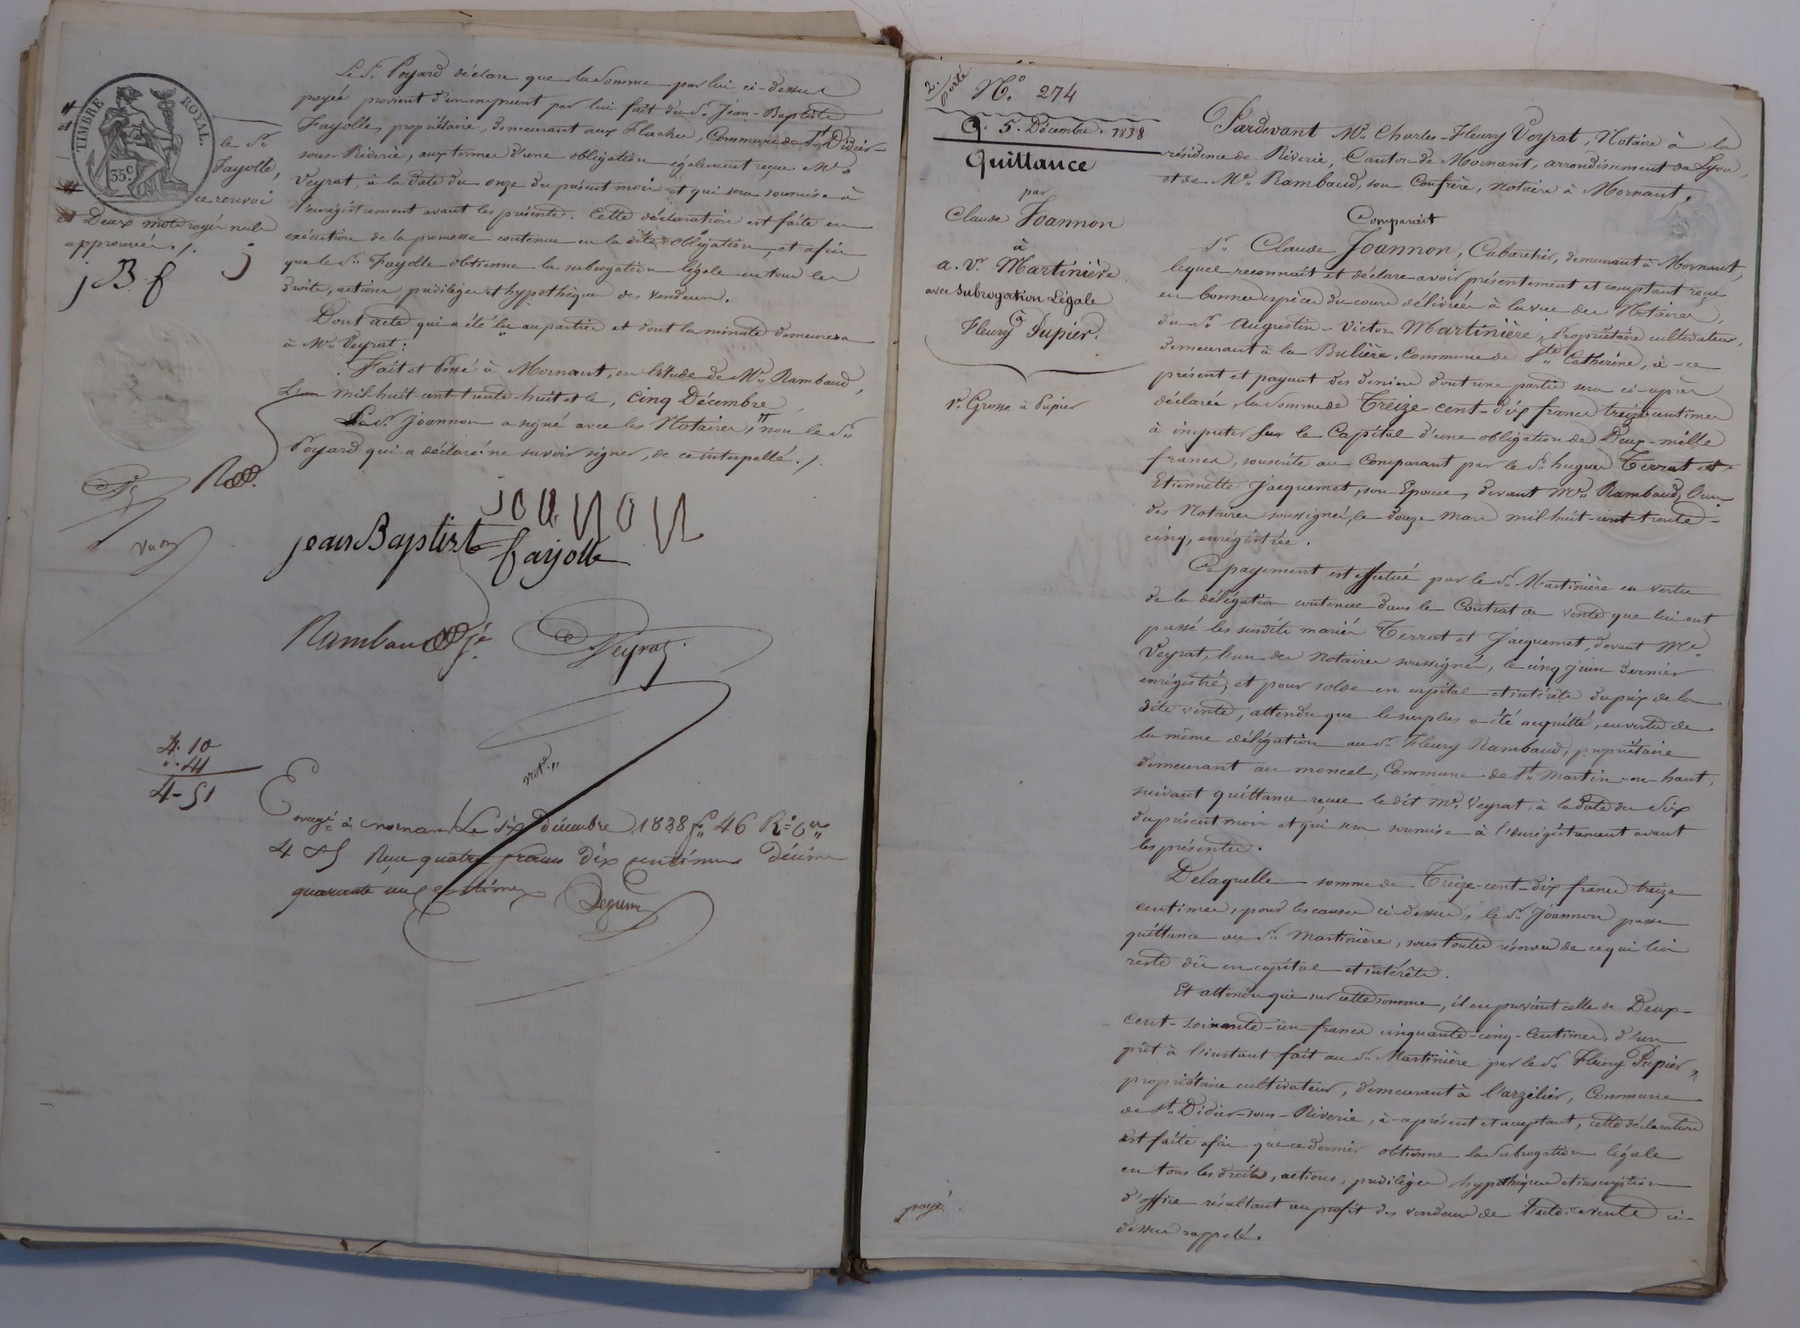 Le Sr. Poyard déclare que la somme par lui ci-dessus
payée provient d'un emprunt par lui fait du Sr. Jean-Baptiste
Fayolle, propriétaire, demeurant aux Flaches, Commune de St. Didier-
sous-Riverie, aux termes d'une obligation également reçue Me.
Veyrat, à la date du onze du présent mois et qui sera soumise à
l'enregistrement avant les présentes. Cette déclaration est faite en
exécution de la promesse contenue en la dite obligation, et afin
que le Sr. Fayolle obtienne la subrogation légale en tous les
droits, actions privilèges et hypothèques des vendeurs.
Dont acte qui a été lu aux parties et dont la minute demeurera
à Me. Veyrat.
Fait et Passé à Mornant, en l'étude de Me. Rambaud,
L'an mil huit cent trente huit et le, cinq Décembre
Le Sr. Joannon a signé avec les Notaires, non le Sr.
Poyard qui a déclaré ne savoir signer, de ce interpellé./.
TIMBRE ROYAL
35 c.
le Sr.
Fayolle,
ce renvoi
Deux mots rayés nuls
approuvés./.
j B f J
joanon
jean Baptist fayolle
Rambaud
Veyrat
4. 10
. 41
4-51
Enregé. à Mornant Le six décembre 1838 fo. 46 Ro. Cs
4 & 5 Reçu quatre francs dix centimes Décime
quarante un centimes
2.
porté
No. 274
5. Décembre. 1838
Quittance
par
Claude Joannon
à
a. Vr. Martinière
avec Subrogation Légale
à
Fleury Pupier.
1re. Grosse à Pupier
Pardevant Me. Charles-Fleury Veyrat, Notaire à la
résidence de Riverie, Canton de Mornant, arrondissement de Lyon,
et de Me. Rambaud, son Confrère, Notaire à Mornant,
Comparait
Sr. Claude Joannon, Cabaretier, demeurant à Mornant,
lequel reconnait et déclare avoir présentement et comptant reçu
en bonnes espèces du cours délivrées à la vue des Notaires,
du Sr. Augustin-Victor Martinière, Propriétaire cultivateur,
demeurant à la Bulière, Commune de Ste. Catherine, à-ce
présent et payant des deniers dont une partie sera ci-après
déclarée, la somme de Treize cent-dix francs treize centimes
à imputer sur le Capital d'une obligation de Deux-mille
francs, souscrite au Comparant par le Sr. hugues Terrat et
Etiennette Jacquemet, son Epouse, devant Me. Rambaud, l'un
des Notaires soussignés, le douze Mars mil huit-cent-trente-
cinq, enregistrée.
Ce payement est effectué par le Sr. Martinière en vertu
de la délégation contenue dans le Contrat de vente que lui ont
passé les susdits mariés Terrat et Jacquemet, devant Me.
Veyrat, l'un des Notaires soussignés, le cinq juin dernier
enregistré, et pour solde en capital et intérêts du prix de la
dite vente, attendu que le surplus a été acquitté, en vertu de
la même délégation au Sr. Fleury Rambaud, propriétaire
demeurant au moncel, Commune de St. Martin-en-haut,
suivant quittance reçue le dit Me. Veyrat, à la date du Six
du présent mois et qui sera soumise à l'enregistrement avant
les présentes.
De laquelle somme de Treize-cent-dix francs treize
centimes, pour les causes ci-dessus, le Sr. Joannon passe
quittance au Sr. Martinière, sous toutes réserves de ce qui lui
reste dû en capital et intérêts.
Et attendu que sur cette somme, il en provient celle de Deux-
cent-soixante-un francs cinquante-cinq-Centimes, d'un
prêt à l'instant fait au Sr. Martinière par le Sr. Fleury Pupier,
propriétaire cultivateur, demeurant à l'arzelier, Commune
de St. Didier-sous-Riverie, à-ce présent et acceptant, cette déclaration
est faite afin que ce dernier obtienne la subrogation légale
en tous les droits, actions, privilèges hypothèques et inscription
d'office résultant au profit des vendeurs de l'acte de vente ci-
dessus rappelé.
payé